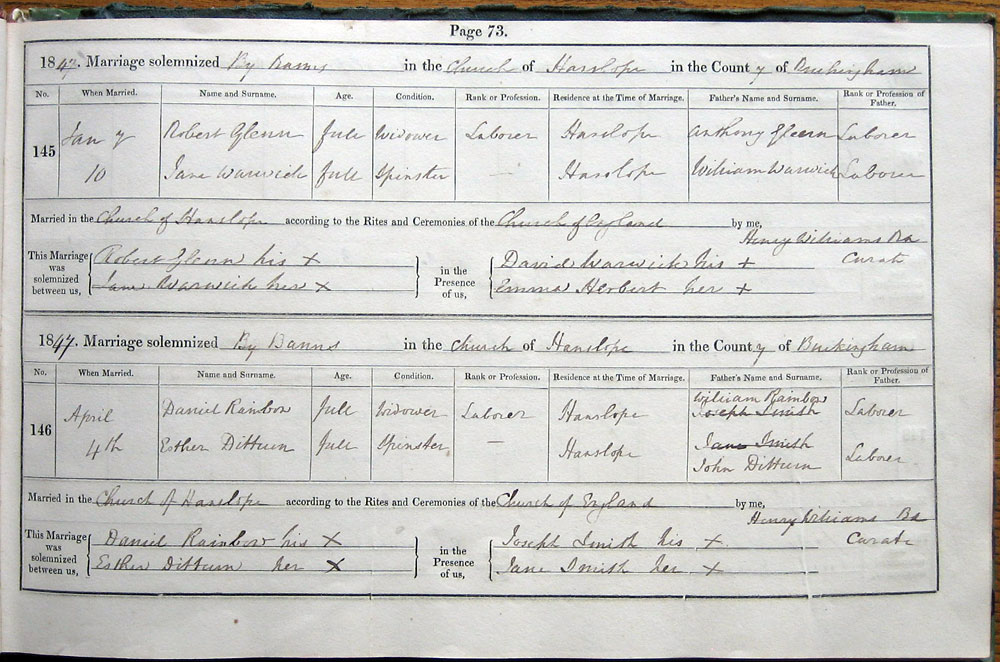 Page 73.
1847. Marriage solemnized By Banns in the Church of Hanslope in the County of Buckingham
No. When Married. Name and Surname. Age. Condition. Rank or Profession. Residence at the Time of Marriage. Father's Name and Surname. Rank or Profession of Father.
145 Jan y Robert Glenn Full Widower Laborer Hanslope Anthony Gleern Laborer
10 Jane Warwick Full Spinster — Hanslope William Warwick Laborer
Married in the Church of Hanslope according to the Rites and Ceremonies of the Church of England by me,
Henry Williams Ba
Curate
This Marriage was solemnized between us, Robert Glenn his X in the Presence of us, David Warwick his +
Jane Warwick her X Emma Herbert her +
1847. Marriage solemnized By Banns in the Church of Hanslope in the County of Buckingham
No. When Married. Name and Surname. Age. Condition. Rank or Profession. Residence at the Time of Marriage. Father's Name and Surname. Rank or Profession of Father.
146 April Daniel Rainbow Full Widower Laborer Hanslope William Rainbow Joseph Smith Laborer
4th Esther Dittum Full Spinster — Hanslope Jane Smith John Dittum Laborer
Married in the Church of Hanslope according to the Rites and Ceremonies of the Church of England by me,
Henry Williams Ba
Curate
This Marriage was solemnized between us, Daniel Rainbow his X in the Presence of us, Joseph Smith his X
Esther Dittum her X Jane Smith her X